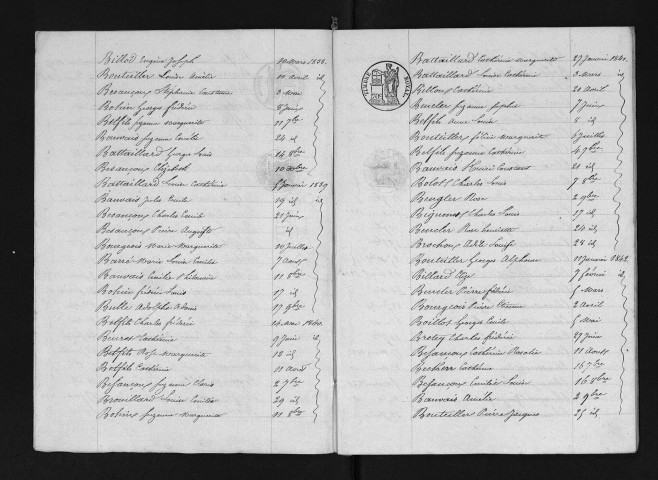 Billod Eugène Joseph 10 Mars 1838.
Bouteiller Louise Amélie 11 avril id
Besançon Stéphanie Constance 3 Mai
Bohin Georges frédéric 8 Juin
Belfils Suzanne Marguerite 11 7bre
Bauvais Suzanne Emilie 24 id
Battaillard Georges Louis 14 8bre
Besançon Elizabeth 10 xbre
Battaillard Louise Catherine 5 Janvier 1839
Bauvais Jules Emile 19 id id
Besançon Charles Emile 21 Juin
Besançon Pierre Auguste id
Bourgeois Marie Marguerite 20 Juillet
Barré Marie Louise Emilie 7 Aout
Bauvais Emilie Philomène 11 8bre
Bohin frédéric Louis 17 id
Bulle Adolphe Adonis 17 9bre
Belfils Charles frédéric 14 Mai 1840.
Beuret Catherine 9 Juin id
Belfils Rose Marguerite 18 id
Belfils Catherine 11 Aout
Besançon Suzanne Marie 2 7bre
Brouillard Louise Emilie 29 id
Bohin Suzanne Marguerite 11 8bre
TIMBRE ROYAL
Battaillard Catherine Marguerite 27 Janvier 1841.
Battaillard Louise Catherine 3 Mars id
Billon Catherine 21 Avril
Beucler Suzanne Sophie 7 Juin
Belfils Anne Louise 8 id
Bouteiller félicie Marguerite 6 Juillet
Belfils Suzanne Catherine 4 9bre
Bauvais Henri Constant 21 id
Bolot Charles Louis 7 8bre
Bengler Rose 2 9bre
Bignons Charles Louis 17 id
Beucler Rose henriette 24 id
Brochon Adèle Louise 28 id
Bouteiller Georges Alphonse 11 Janvier 1842.
Billard 7 février id
Beucler Pierre frédéric 5 Mars
Bourgeois Pierre Etienne 2 Avril
Boillot Georges Emile 5 Mai
Brotey Charles frédéric 29 Juin
Besançon Catherine Rosalie 11 Aout
Becherr Catherine 16 7bre
Besançon Emilie Louise 16 8bre
Bauvais Amélie 2 9bre
Bouteiller Pierre Jacques 25 id